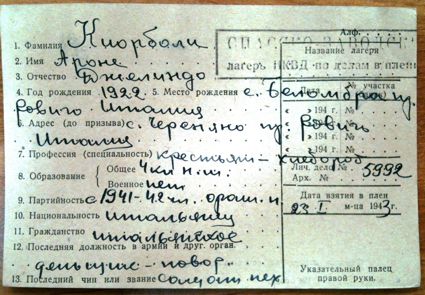 1. Фамилия Кнорбали
2. Имя Ароне
3. Отчество Джелиндо
4. Год рождения 1922. 5. Место рождения с.
ровиго Италия
6. Адрес (до призыва) с. Череняно пр. Ровиго
Италия
7. Профессия (специальность) крестьянин - хлебороб
8. Образование { Общее 4 кл. н. ш.
Военное нет
9. Партийность с 1941-42 г.
10. Национальность итальянец
11. Гражданство итальянское
12. Последняя должность в армии и друг. орган.
денщик - повар
13. Последний чин или звание солдат пех.
Алф.
СПАССКО-ЗАВОДСК
лагерь НКВД по делам в плен
Название лагеря
№ участка
« » 194 г.
« » 194 г.
« » 194 г.
Лич. дело № 5992
Арх. №
Дата взятия в плен
23. I. м-ца 1943 г.
Указательный палец
правой руки.